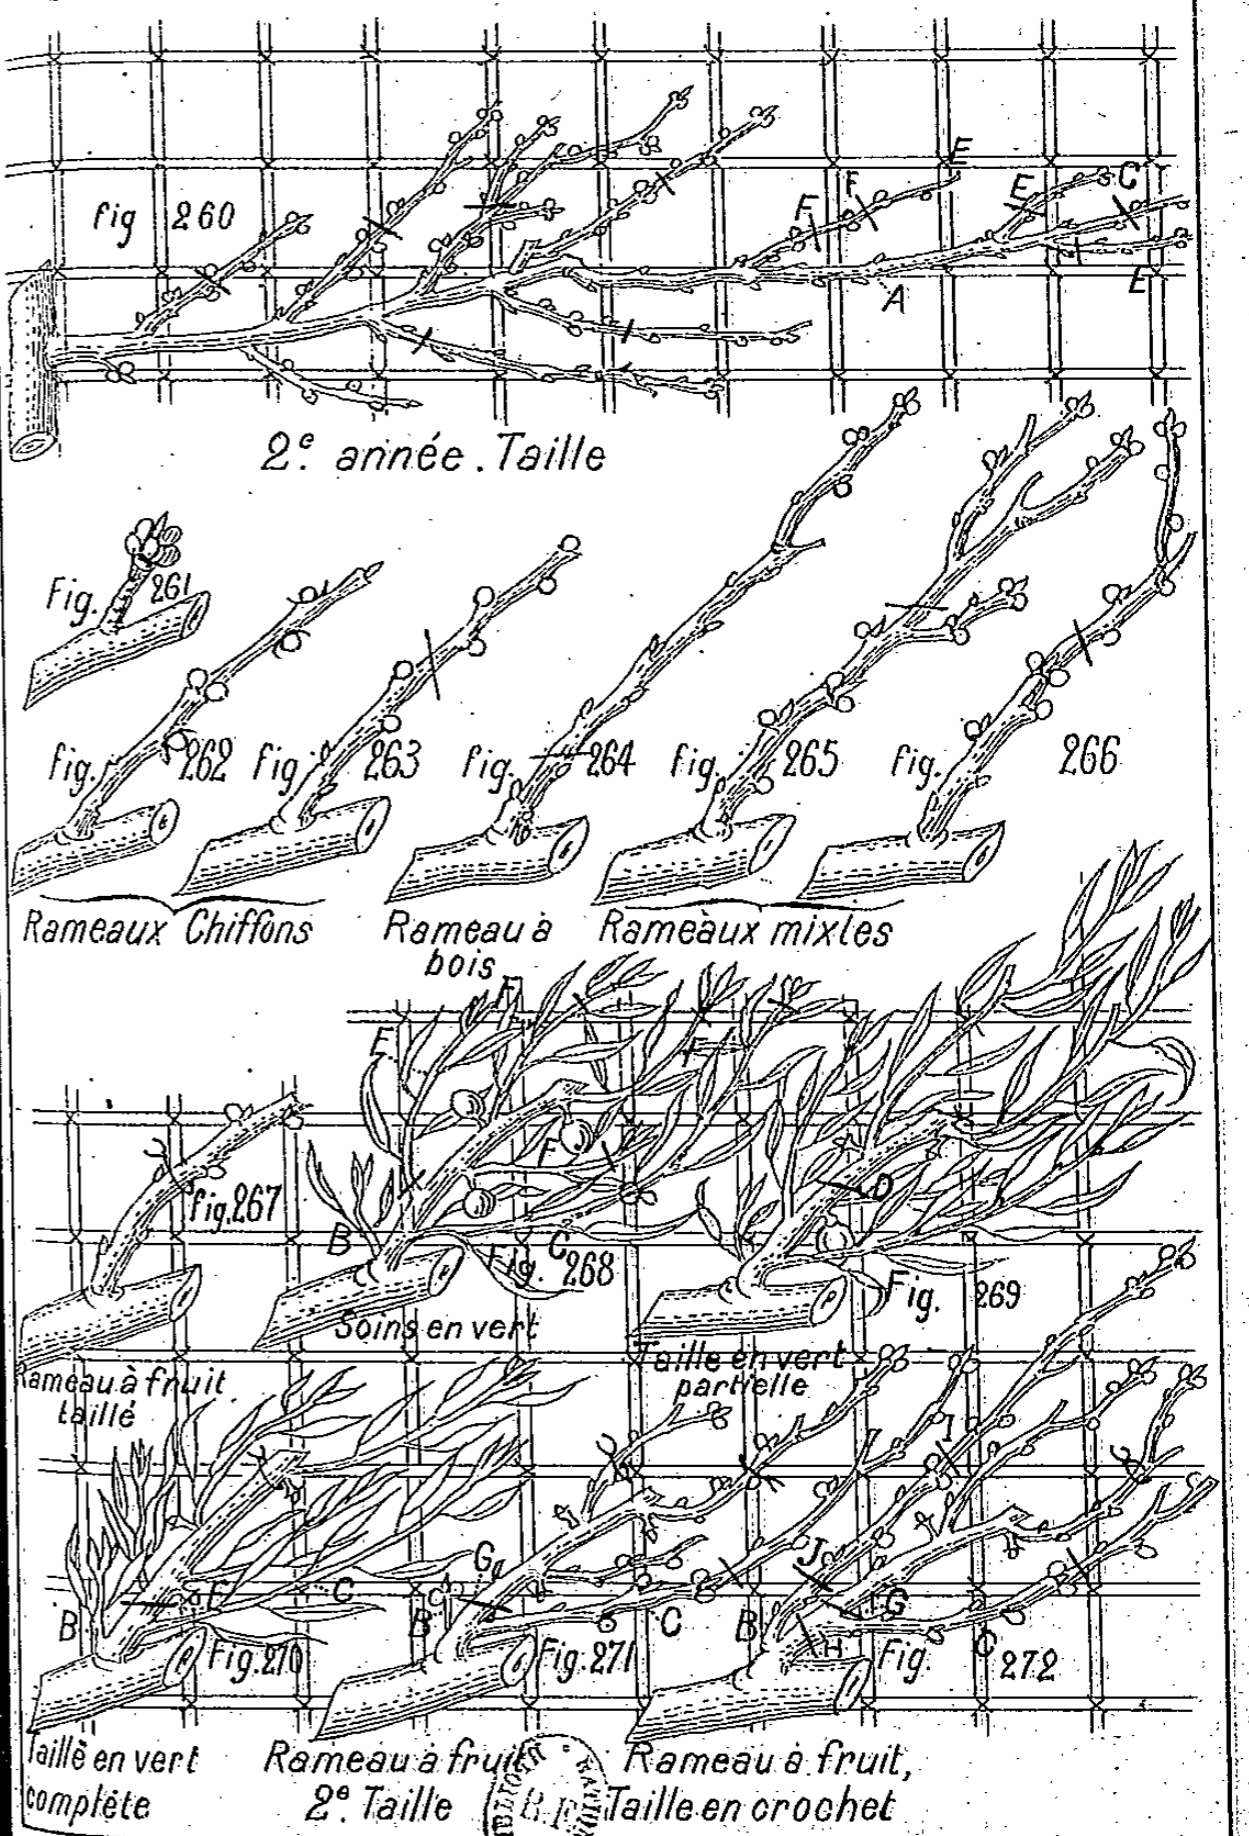 fig 260
F F E E C
A E
2e année. Taille
Fig. 261
fig. 262 fig 263 fig. 264 fig. 265 fig. 266
Rameaux Chiffons Rameau à bois Rameaux mixtes
E F F
F
fig. 267
B Fig. C 268
D
Fig. 269
Soins en vert
Taille en vert
partielle
Rameau à fruit
taillé
I
G J
B F C B C B G
H C
Fig. 270 Fig. 271 Fig. 272
Taille en vert
complète
Rameau à fruit
2e Taille
Rameau à fruit,
Taille en crochet